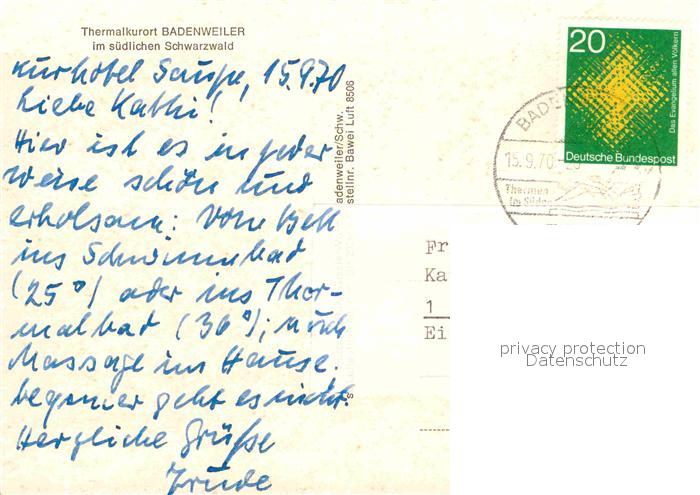 Thermalkurort BADENWEILER
im südlichen Schwarzwald
Kurhotel Saupe, 15.9.70
Liebe Kathi!
Hier ist es in jeder
Weise schön und
erholsam: Vom Bett
ins Schwimmbad
(25°) oder ins Ther-
malbad (36°); auch
Massage im Hause.
bequemer geht es nicht.
Herzliche Grüße
Trude
adenweiler/Schw.
stellnr. Bawei Luft 8506
20
Das Evangelium allen Völkern
Deutsche Bundespost
BADEN
15.9.70
Thermen
im Süden
Fr
Ka
1
Ei
privacy protection
Datenschutz